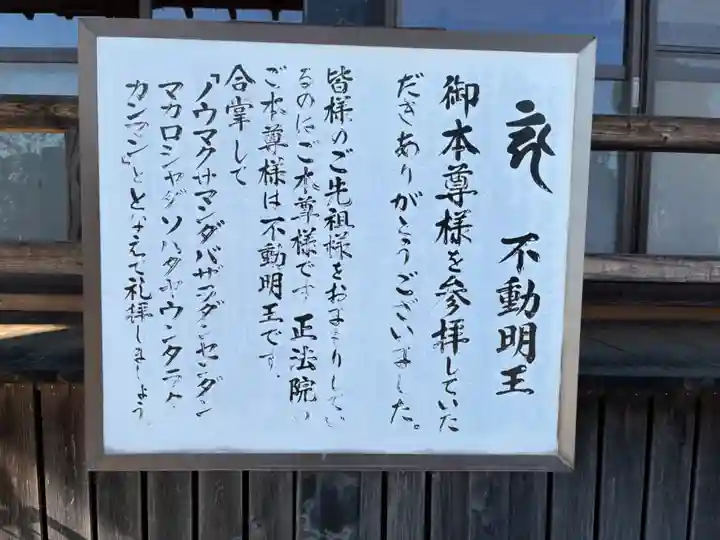 不動明王
御本尊様を参拝していた
だきありがとうございました。
皆様のご先祖様をおまもりしてい
るのはご本尊様です 正法院の
ご本尊様は不動明王です。
合掌して
「ノウマクサマンダバザラダンセンダン
マカロシャダソハタヤウンタラタ
カンマン」ととなえて礼拝しましょう。